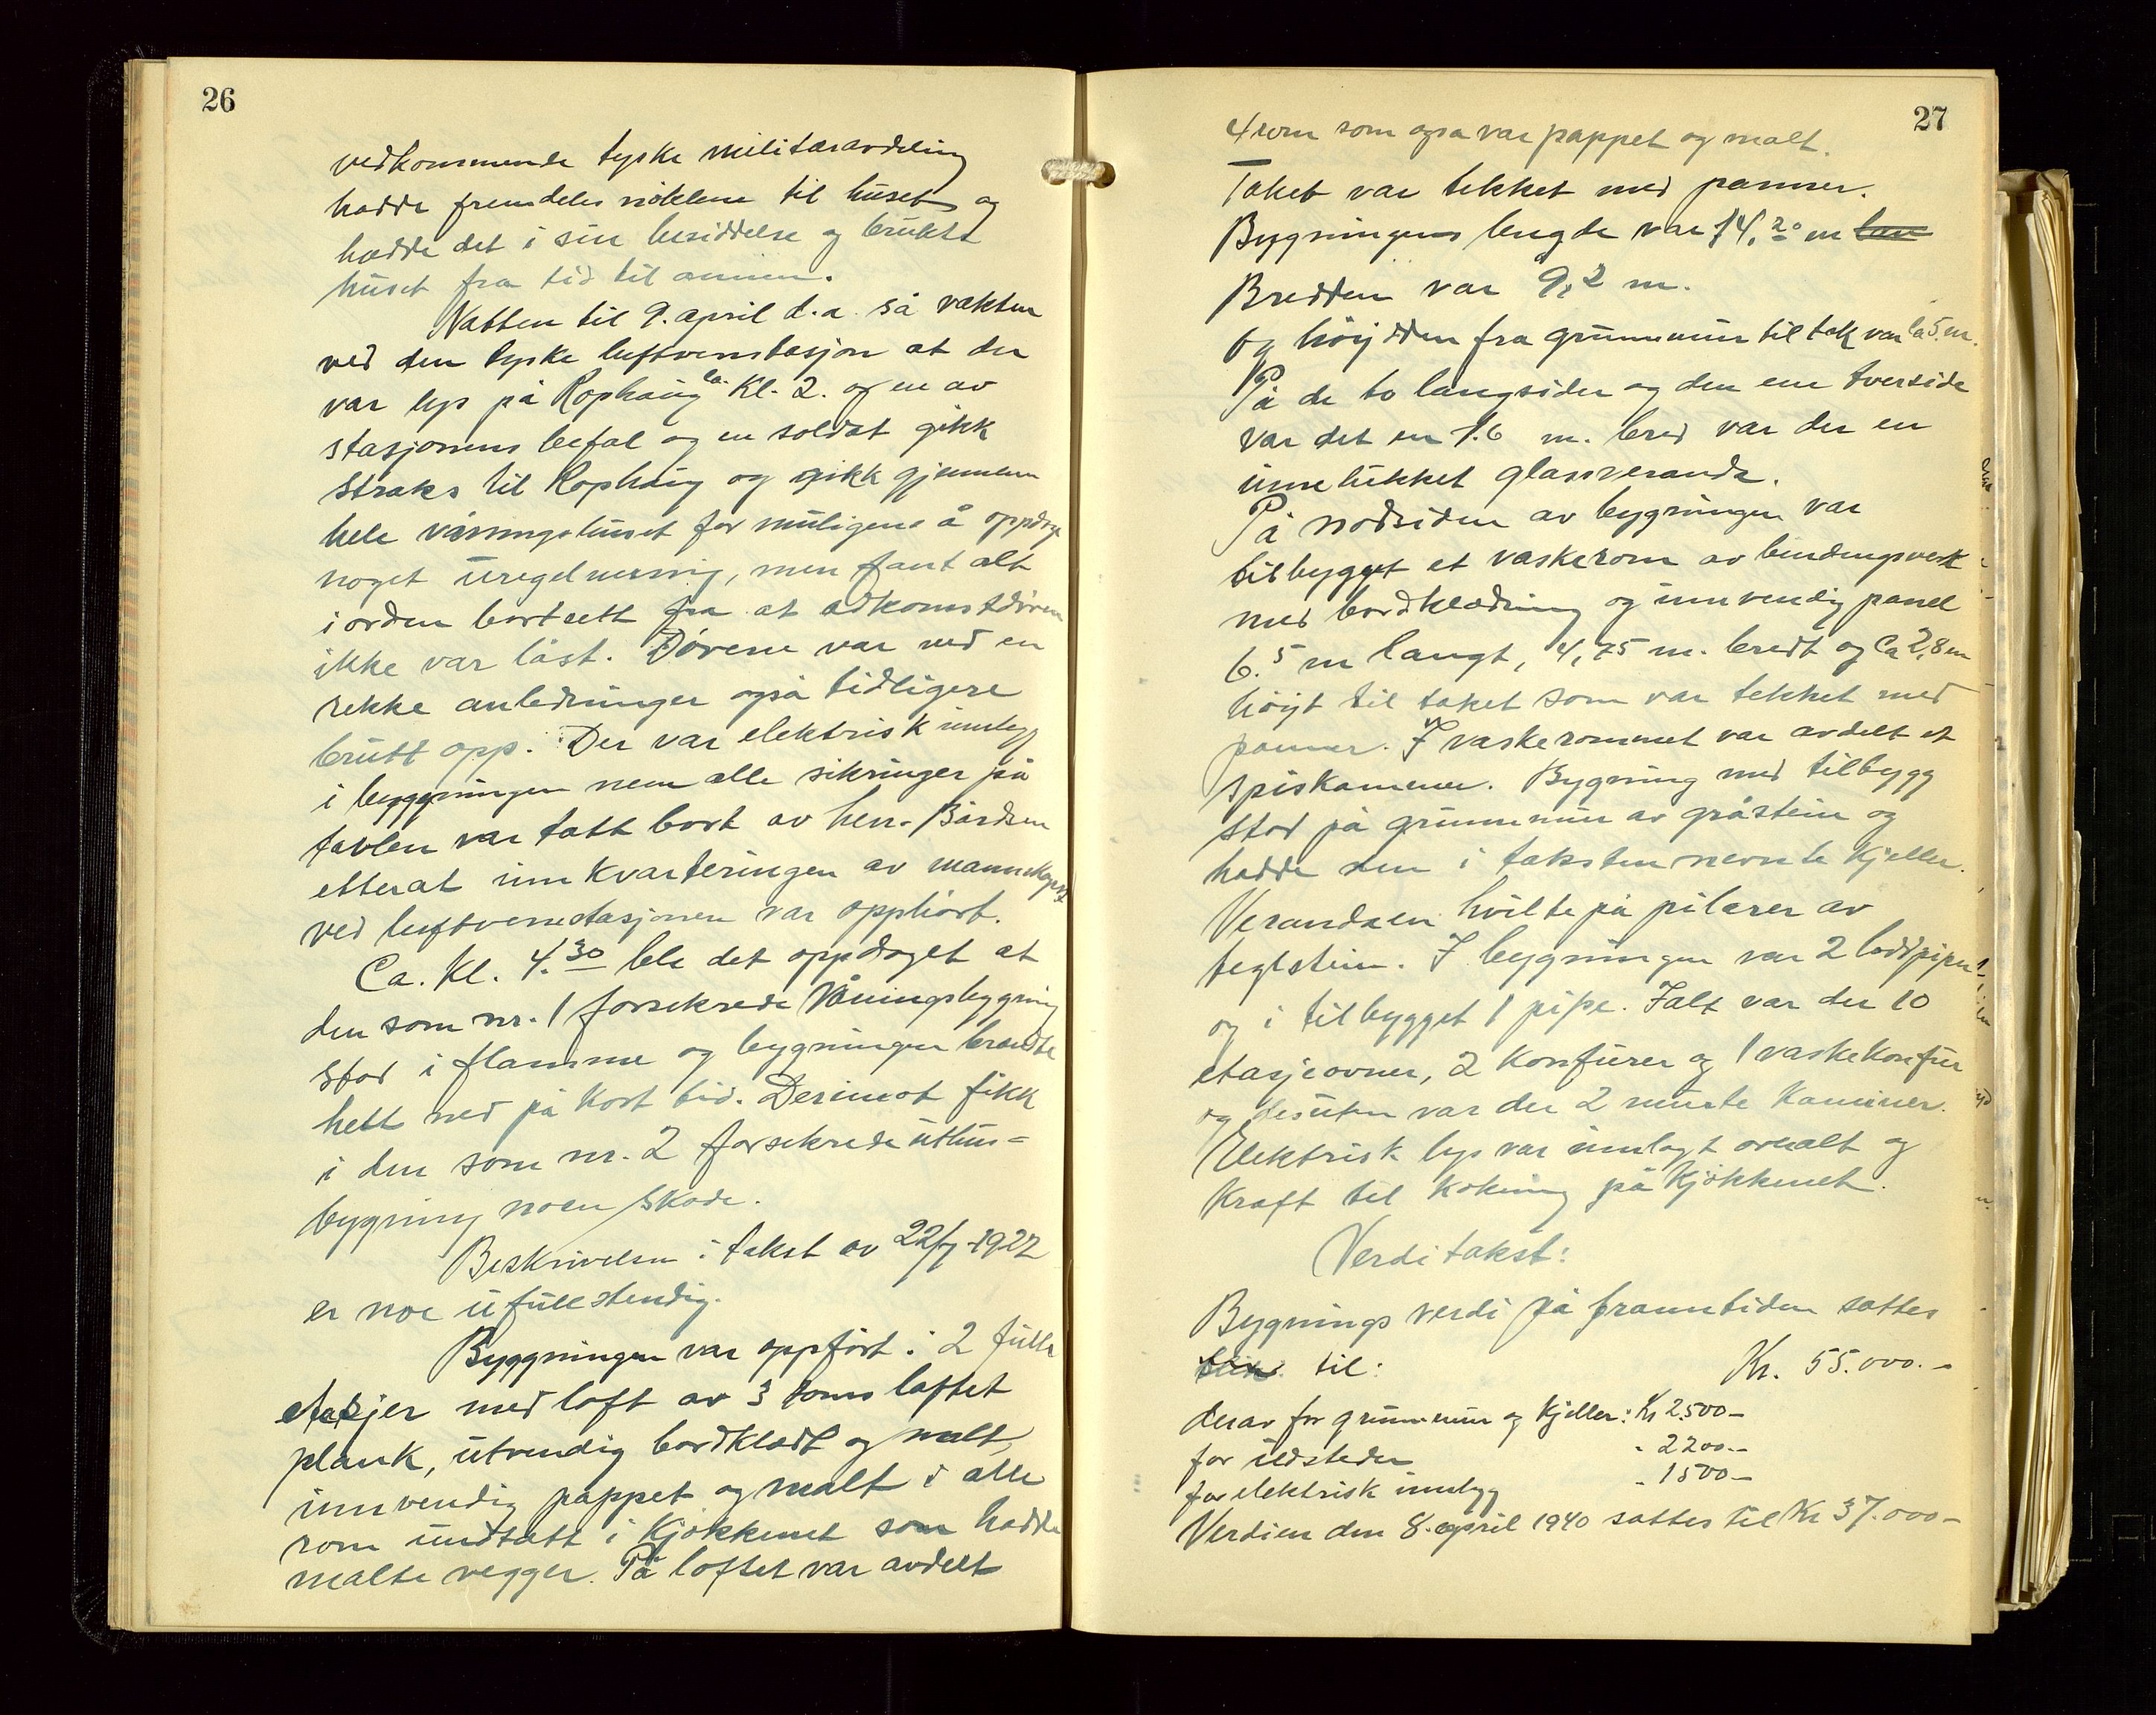 26
vedkommende tyske militæravdeling
hadde fremdeles nøklene til huset og
hadde det i sin besiddelse og brukte
huset fra tid til annen.
Natten til 9. april d.a. så vakten
ved den tyske luftvernstasjon at der
var lys på Rophaug ca. Kl. 2. og en av
stasjonens befal og en soldat gikk
straks til Rophaug og gikk gjennem
hele våningshuset for muligens å oppdage
noget uregelmessig, men fant alt
i orden bortsett fra at adkomstdøren
ikke var låst. Dørene var ved en
rekke anledninger også tidligere
brutt opp. Der var elektrisk innlegg
i byggningen men alle sikringer på
tavlen var tatt bort av herr Bårdsen
etterat innkvarteringen av mannskaper
ved luftvernstasjonen var opphørt.
Ca. Kl. 4.30 ble det oppdaget at
den som nr. 1 forsekrede Våningsbygning
stod i flamme og bygningen brendte
helt ned på kort tid. Derimot fikk
i den som nr. 2 forsekrede uthus-
bygning noen skade.
Beskrivelsen i takst av 22/7-1927
er noe ufullstendig.
Byggningen var oppført i 2 fulle
etasjer med loft av 3 toms laftet
plank, utvendig bordklædt og malt,
innvendig pappet og malt i alle
rom undtatt i kjøkkenet som hadde
malte vegger. På loftet var avdelt
27
4 rom som også var pappet og malt.
Taket var tekket med panner.
Bygningens lengde var 14,20 m
Bredden var 9,2 m.
Og høijdden fra grunnmur til tak var ca 5 m.
På de to langsider og den ene tverside
var det en 1.6 m. bred var der en
innelukket glassveranda.
På nodsiden av bygningen var
tilbygget et vaskerom av bindingsverk
med bordklædning og innvendig panel
6.5 m langt, 4,75 m. bredt og ca 2,8 m
høijt til taket som var tekket med
panner. I vaskerommet var avdelt et
spiskammer. Bygning med tilbygg
stod på grunnmur av gråstein og
hadde den i taksten nevnte kjeller.
Verandaen hvilte på pilarer av
teglstein. I bygningen var 2 loddpiper
og i tilbygget 1 pipe. Ialt var der 10
etasjeovner, 2 komfurer og 1 vaskekomfur
og desuten var der 2 murte kaminer.
Elektrisk lys var innlagt overalt og
Kraft til kokning på kjøkkenet.
Verditakst:
Bygnings verdi på branntiden sattes
til: Kr. 55.000.-
derav for grunnmur og kjeller: Kr 2500-
for ildsteder - 2200.-
for elektrisk innlegg - 1500-
Verdien den 8. april 1940 sattes til Kr 37.000-